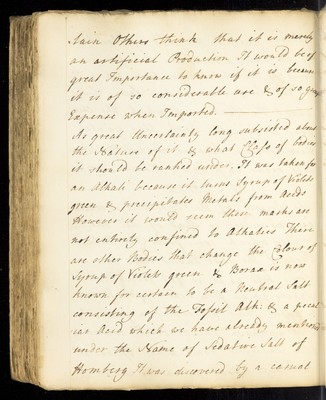 tain Others think that it is merely
an artificial Production It would be of
great Importance to know if it is because
it is of so considerable use & of so great
Expense when Imported.
As great Uncertainty long subsisted about
the Nature of it & what Class of bodies
it should be ranked under. It was taken for
an Alkali because it turns Syrup of Violets
green & precipitates Metals from Acids
However it would seem these marks are
not entirely confined to Alkalies There
are other Bodies that change the Colour of
Syrup of Violets green & Borax is now
known for certain to be a Neutral Salt
consisting of the Fossil Alk: & a pecul
iar Acid which we have already mentioned
under the Name of Sedative Salt of
Homberg It was discovered by a casual